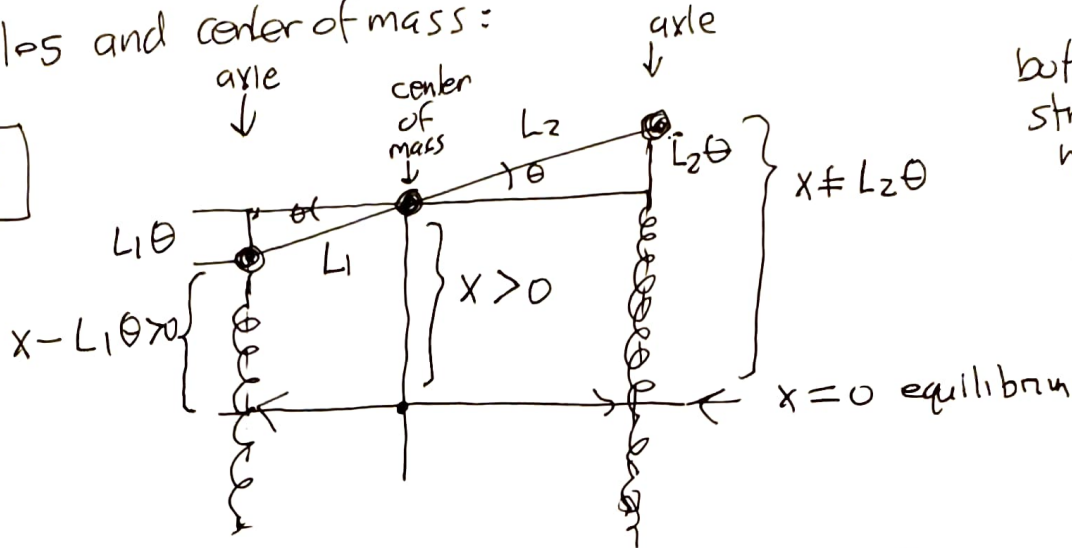 and center of mass:
axle
axle
center
of
mass
but
L₂
θ
L₂θ
x ≠ L₂θ
θ
L₁θ
L₁
x > 0
x - L₁θ > 0
x = 0 equilibrium